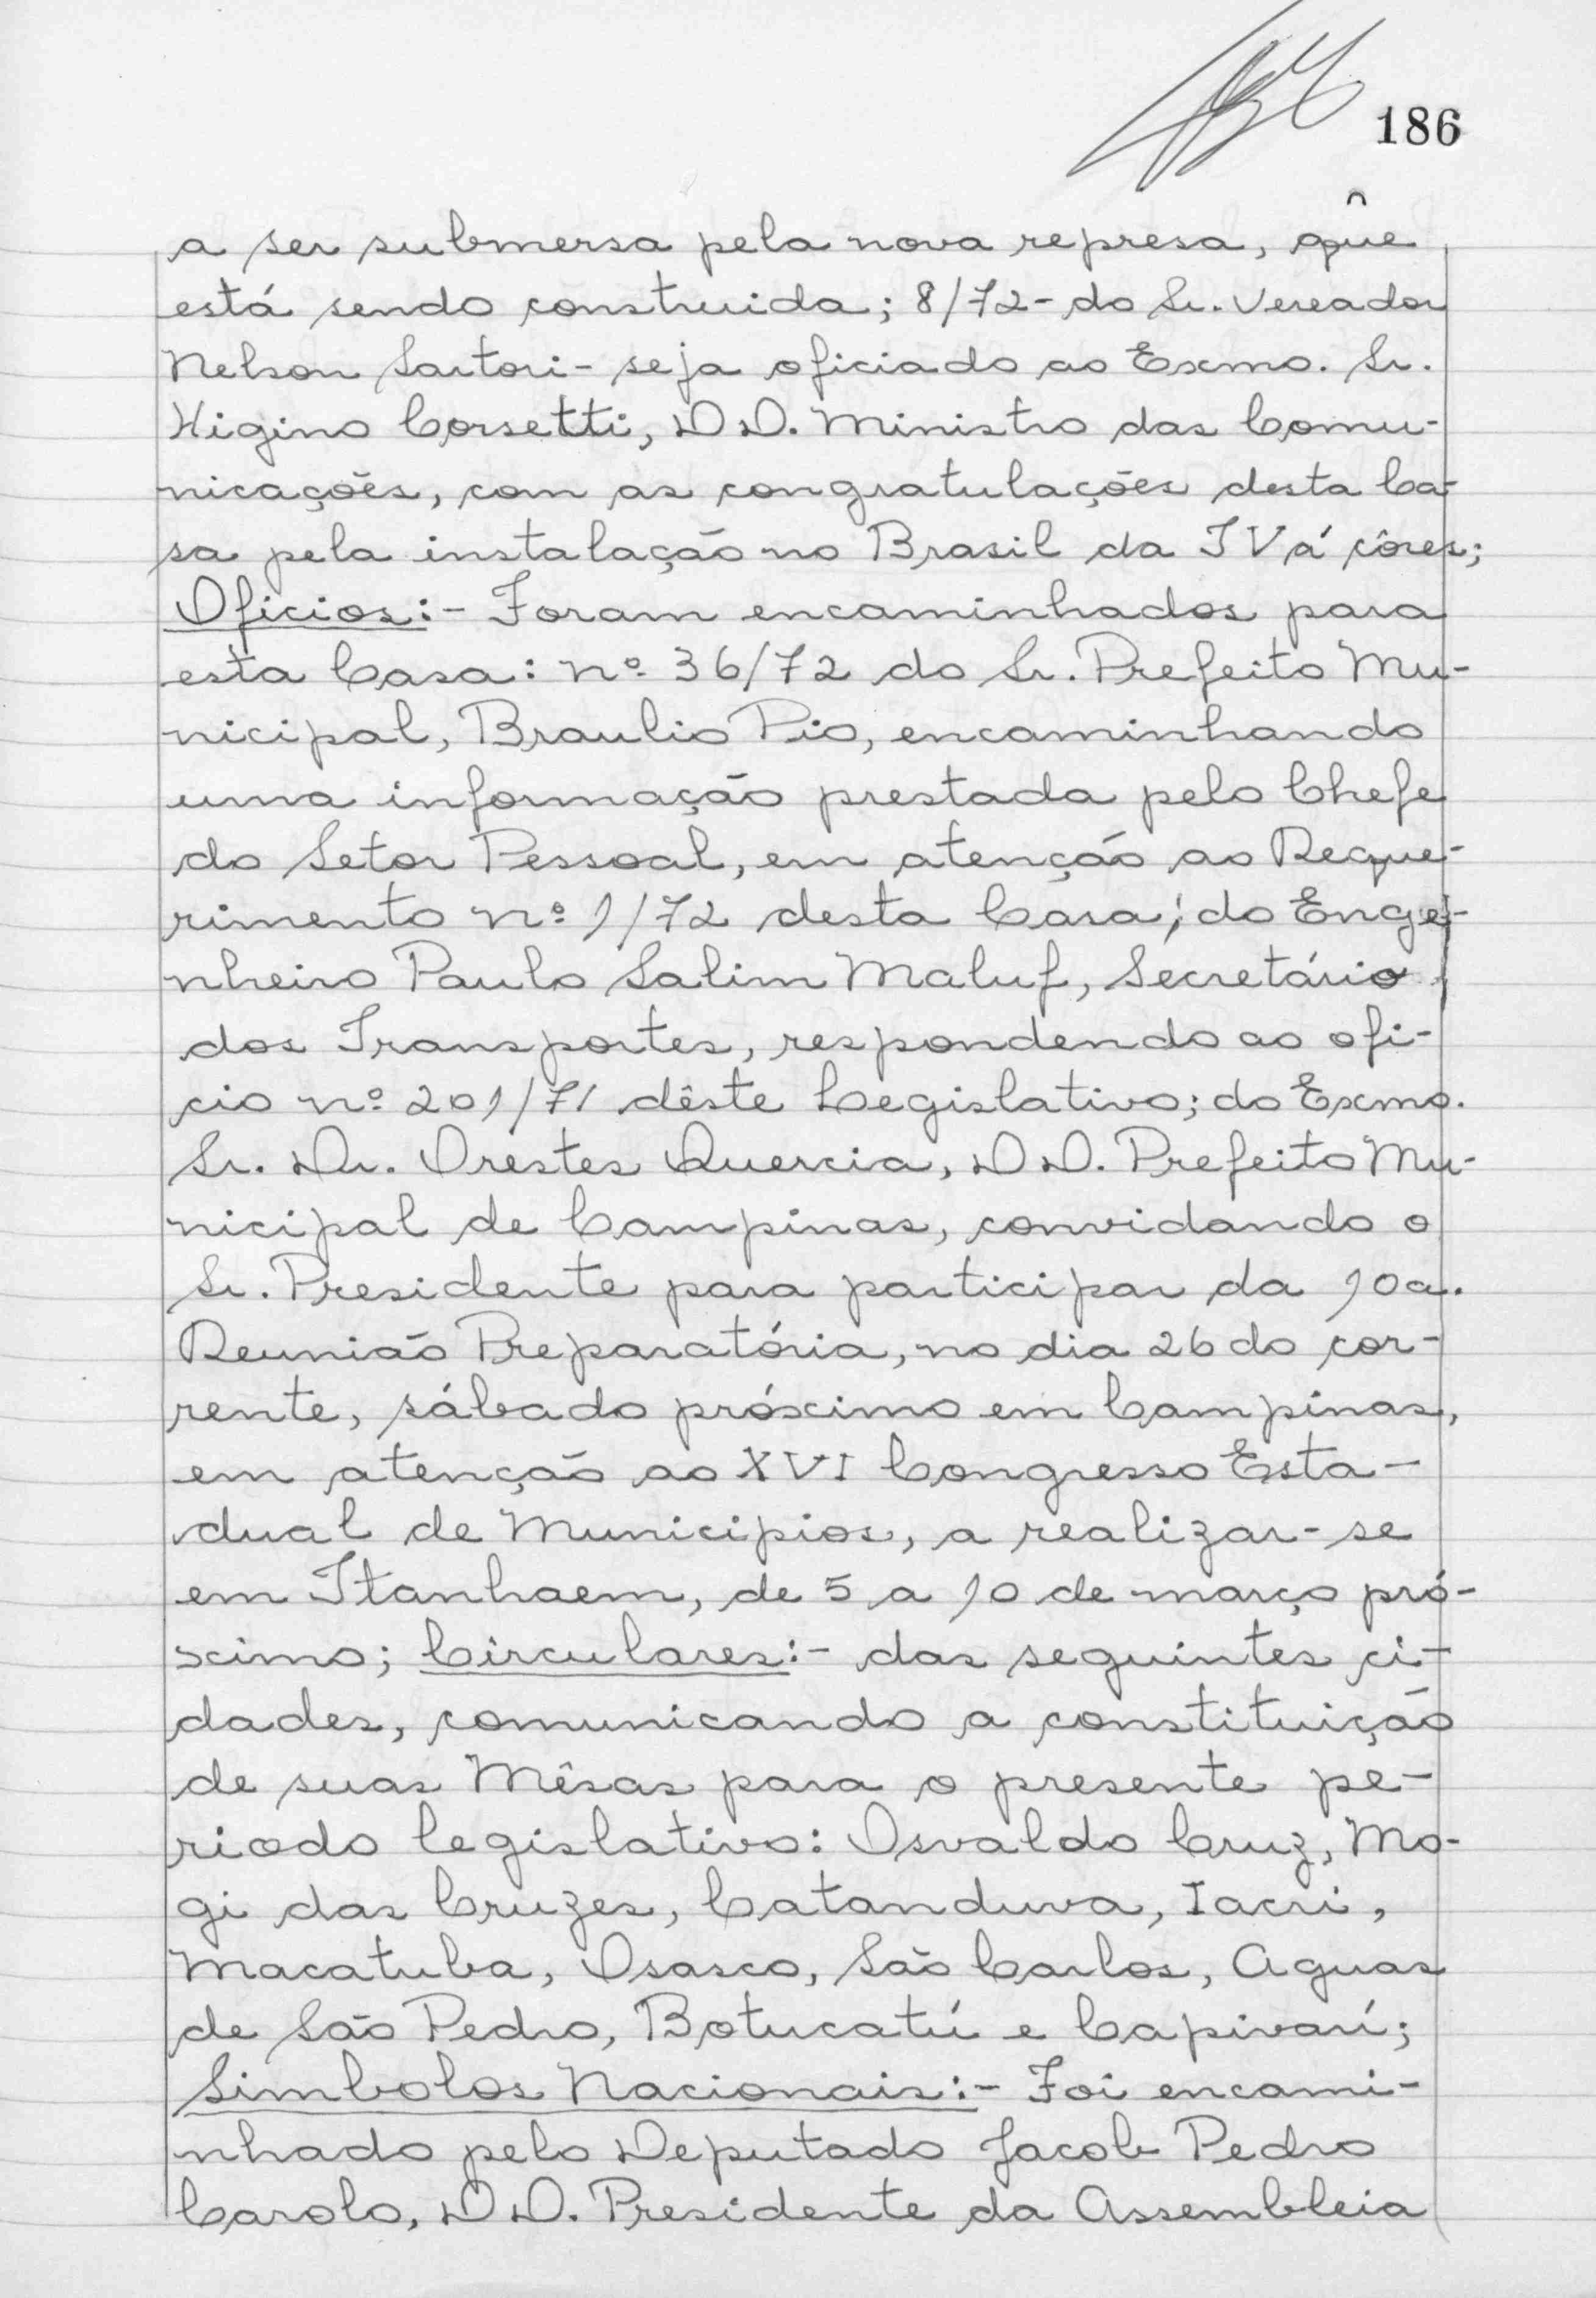 186
a ser submersa pela nova represa, que
está sendo construida; 8/72 - do Sr. Vereador
Nelson Sartori - seja oficiado ao Exmo. Sr.
Higino Corsetti, DD. Ministro das Comu-
nicações, com as congratulações desta Ca-
sa pela instalação no Brasil da TV á côres;
Oficios:- Foram encaminhados para
esta Casa: nº 36/72 do Sr. Prefeito Mu-
nicipal, Braulio Pio, encaminhando
uma informação prestada pelo Chefe
do Setor Pessoal, em atenção ao Reque-
rimento nº 1/72 desta Casa; do Enge-
nheiro Paulo Salim Maluf, Secretário
dos Transportes, respondendo ao ofi-
cio nº 201/71 dêste Legislativo; do Exmo.
Sr. Dr. Orestes Quercia, DD. Prefeito Mu-
nicipal de Campinas, convidando o
Sr. Presidente para participar da 10a.
Reunião Preparatória, no dia 26 do cor-
rente, sábado próximo em Campinas,
em atenção ao XVI Congresso Esta-
dual de Municipios, a realizar-se
em Itanhaem, de 5 a 10 de março pró-
ximo; Circulares:- das seguintes ci-
dades, comunicando a constituição
de suas Mêsas para o presente pe-
riodo legislativo: Osvaldo Cruz, Mo-
gi das Cruzes, Catanduva, Iacri,
Macatuba, Osasco, São Carlos, Aguas
de São Pedro, Botucatú e Capivarí;
Simbolos Nacionais:- Foi encami-
nhado pelo Deputado Jacob Pedro
Carolo, DD. Presidente da Assembleia